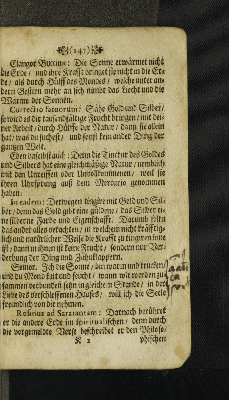 (147)
Clangor Buccinæ: Die Sonne erwärmet nicht
die Erde / und ihre Krafft bringet sie nicht in die Er-
de / als durch Hülff des Mondes / welche unter an-
dern Gestirn mehr an sich nimbt das Liecht und die
Wärme der Sonnen.
Correctio fatuorum: Sähe Gold und Silber /
so wird es dir tausendfältige Frucht bringen / mit dei-
ner Arbeit / durch Hülffe der Natur / dann sie allein
hat / was du suchest / und sonst kein ander Ding der
gantzen Welt.
Eben daselbst auch: Dann die Tinctur des Goldes
und Silbers hat eine gleichmässige Natur / nemblich
mit den Unreiffen oder Unvollkommenen / weil sie
ihren Ursprung auß dem Mercurio genommen
haben.
In eadem: Derwegen tingire mit Gold und Sil-
ber / denn das Gold gibt eine guldene / das Silber ei-
ne silberne Farbe und Eigenschafft. Darumb siehe
das ander alles verachten / in welchem nicht kräfftig-
lich und natürlicher Weise die Krafft zu tingiren inne
ist / dann in ihnen ist keine Frucht / sondern nur Ver-
derbung der Ding und Zahnklappern.
Senior. Ich die Sonne / bin warm und trucken /
und du Mond kalt und feucht / wann wir werden zu-
sammen verbunden seyn in gleichem Stande / in der
Liebe des verschlossenen Hauses / will ich die Seele
freundlich von dir nehmen.
Rosinus ad Saratantam: Darnach berühret
er die andere Erde im spiritualischen / denn durch
die vorgemeldte Verse beschreibet er den Philoso-
K 2
phischen